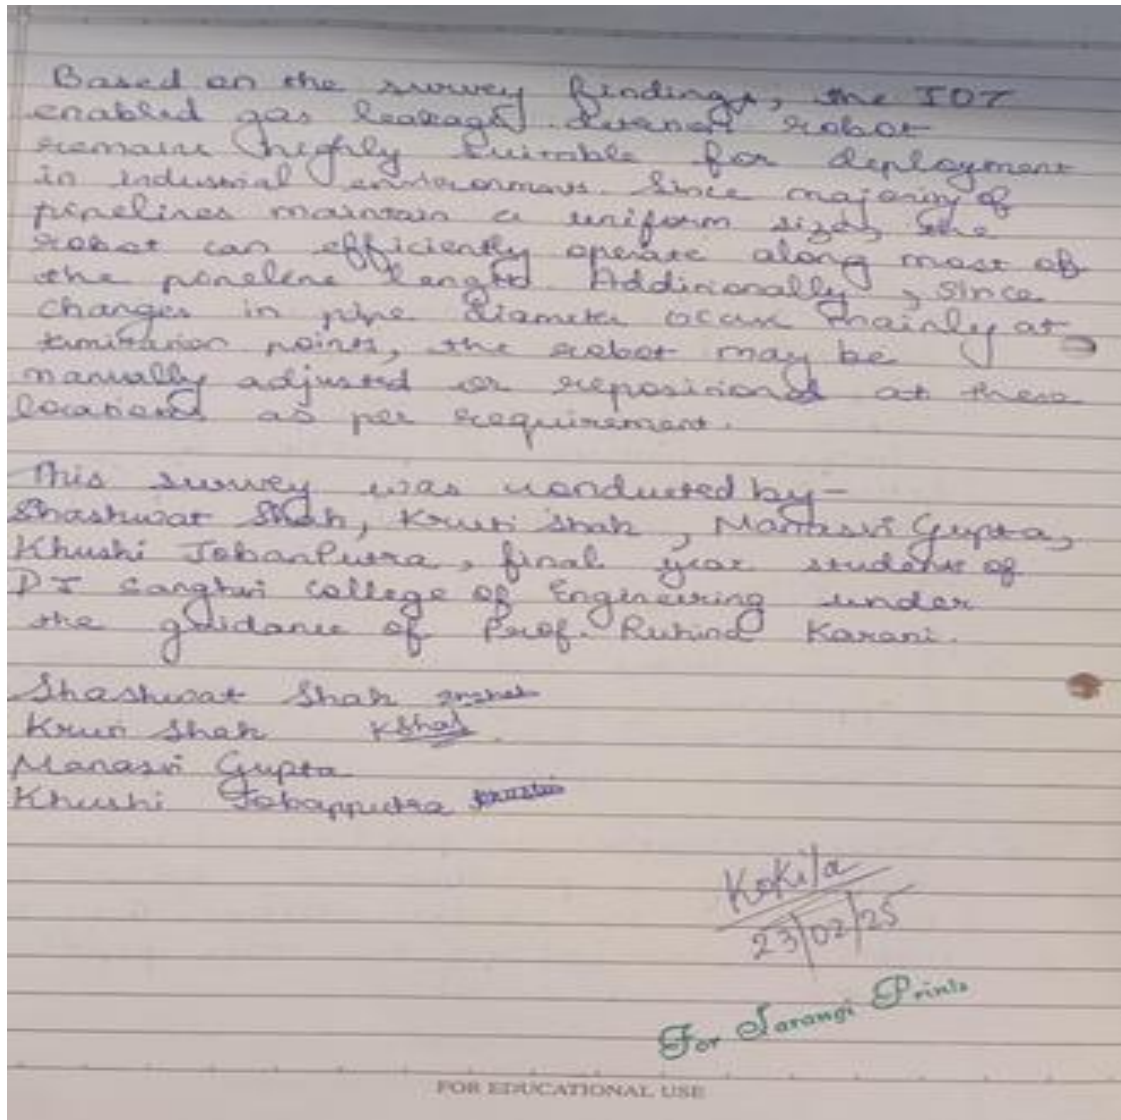 Based on the survey findings, the IOT
enabled gas leakage robot
remains highly suitable for deployment
in industrial environments. Since majority of
pipelines maintain a uniform sized, the
robot can efficiently operate along most of
the pipeline length. Additionally, since
changes in pipe diameter occur mainly at
points, the robot may be
manually adjusted or repositioned at these
locations as per requirement.
This survey was conducted by-
Shashwat Shah, Kruti Shah, Manasvi Gupta,
Khushi JobanPutra, final year students of
DJ Sanghvi College of Engineering under
the guidance of Prof. Karani.
Shashwat Shah
Kruti Shah KShah
Manasvi Gupta
Khushi Jobanputra
Kokila
23/02/25
For Tarangi Prints
FOR EDUCATIONAL USE